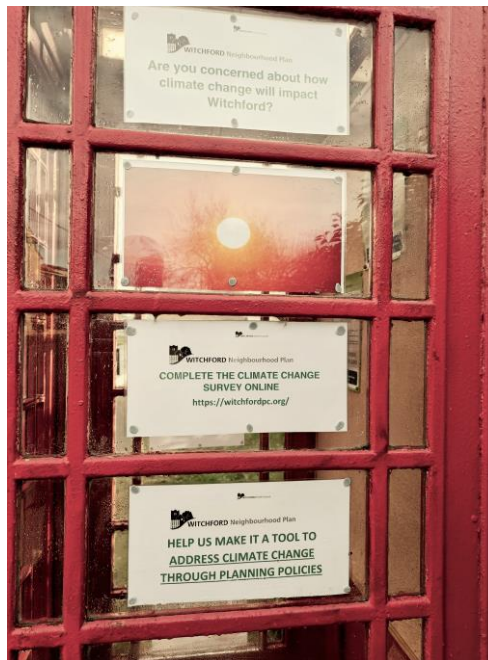 WITCHFORD Neighbourhood Plan
Are you concerned about how
climate change will impact
Witchford?
WITCHFORD Neighbourhood Plan
COMPLETE THE CLIMATE CHANGE
SURVEY ONLINE
https://witchfordpc.org/
WITCHFORD Neighbourhood Plan
HELP US MAKE IT A TOOL TO
ADDRESS CLIMATE CHANGE
THROUGH PLANNING POLICIES